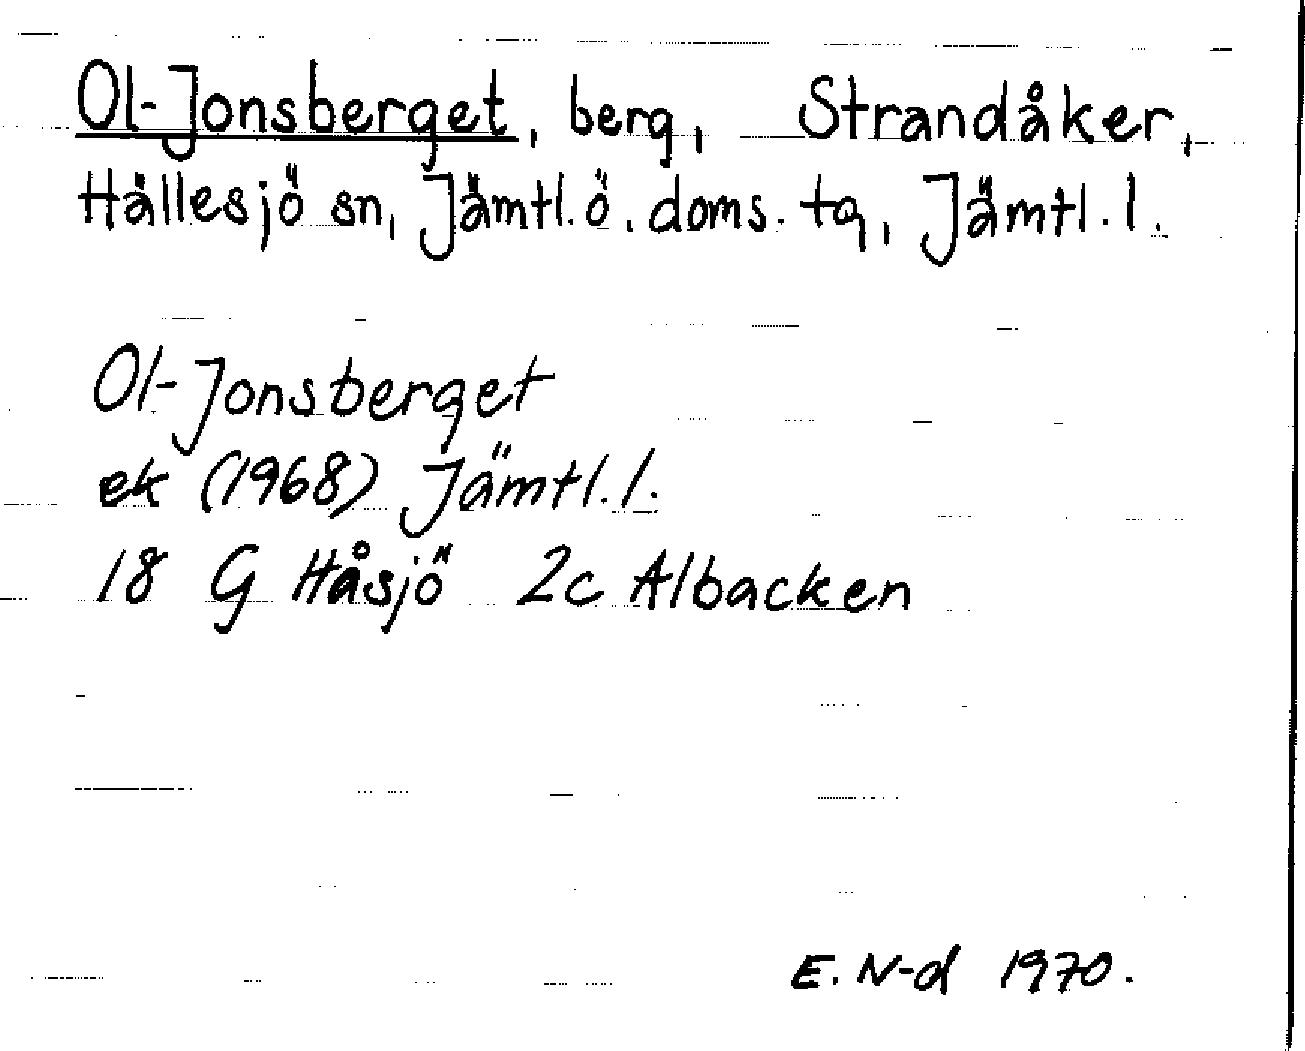 Ol-Jonsberget, berg, Strandåker,
Hällesjö sn, Jämtl. ö. doms. tg, Jämtl. l.
Ol-Jonsberget
ek (1968) Jämtl. l.
18 G Håsjö 2c Albacken
E. N-d 1970.